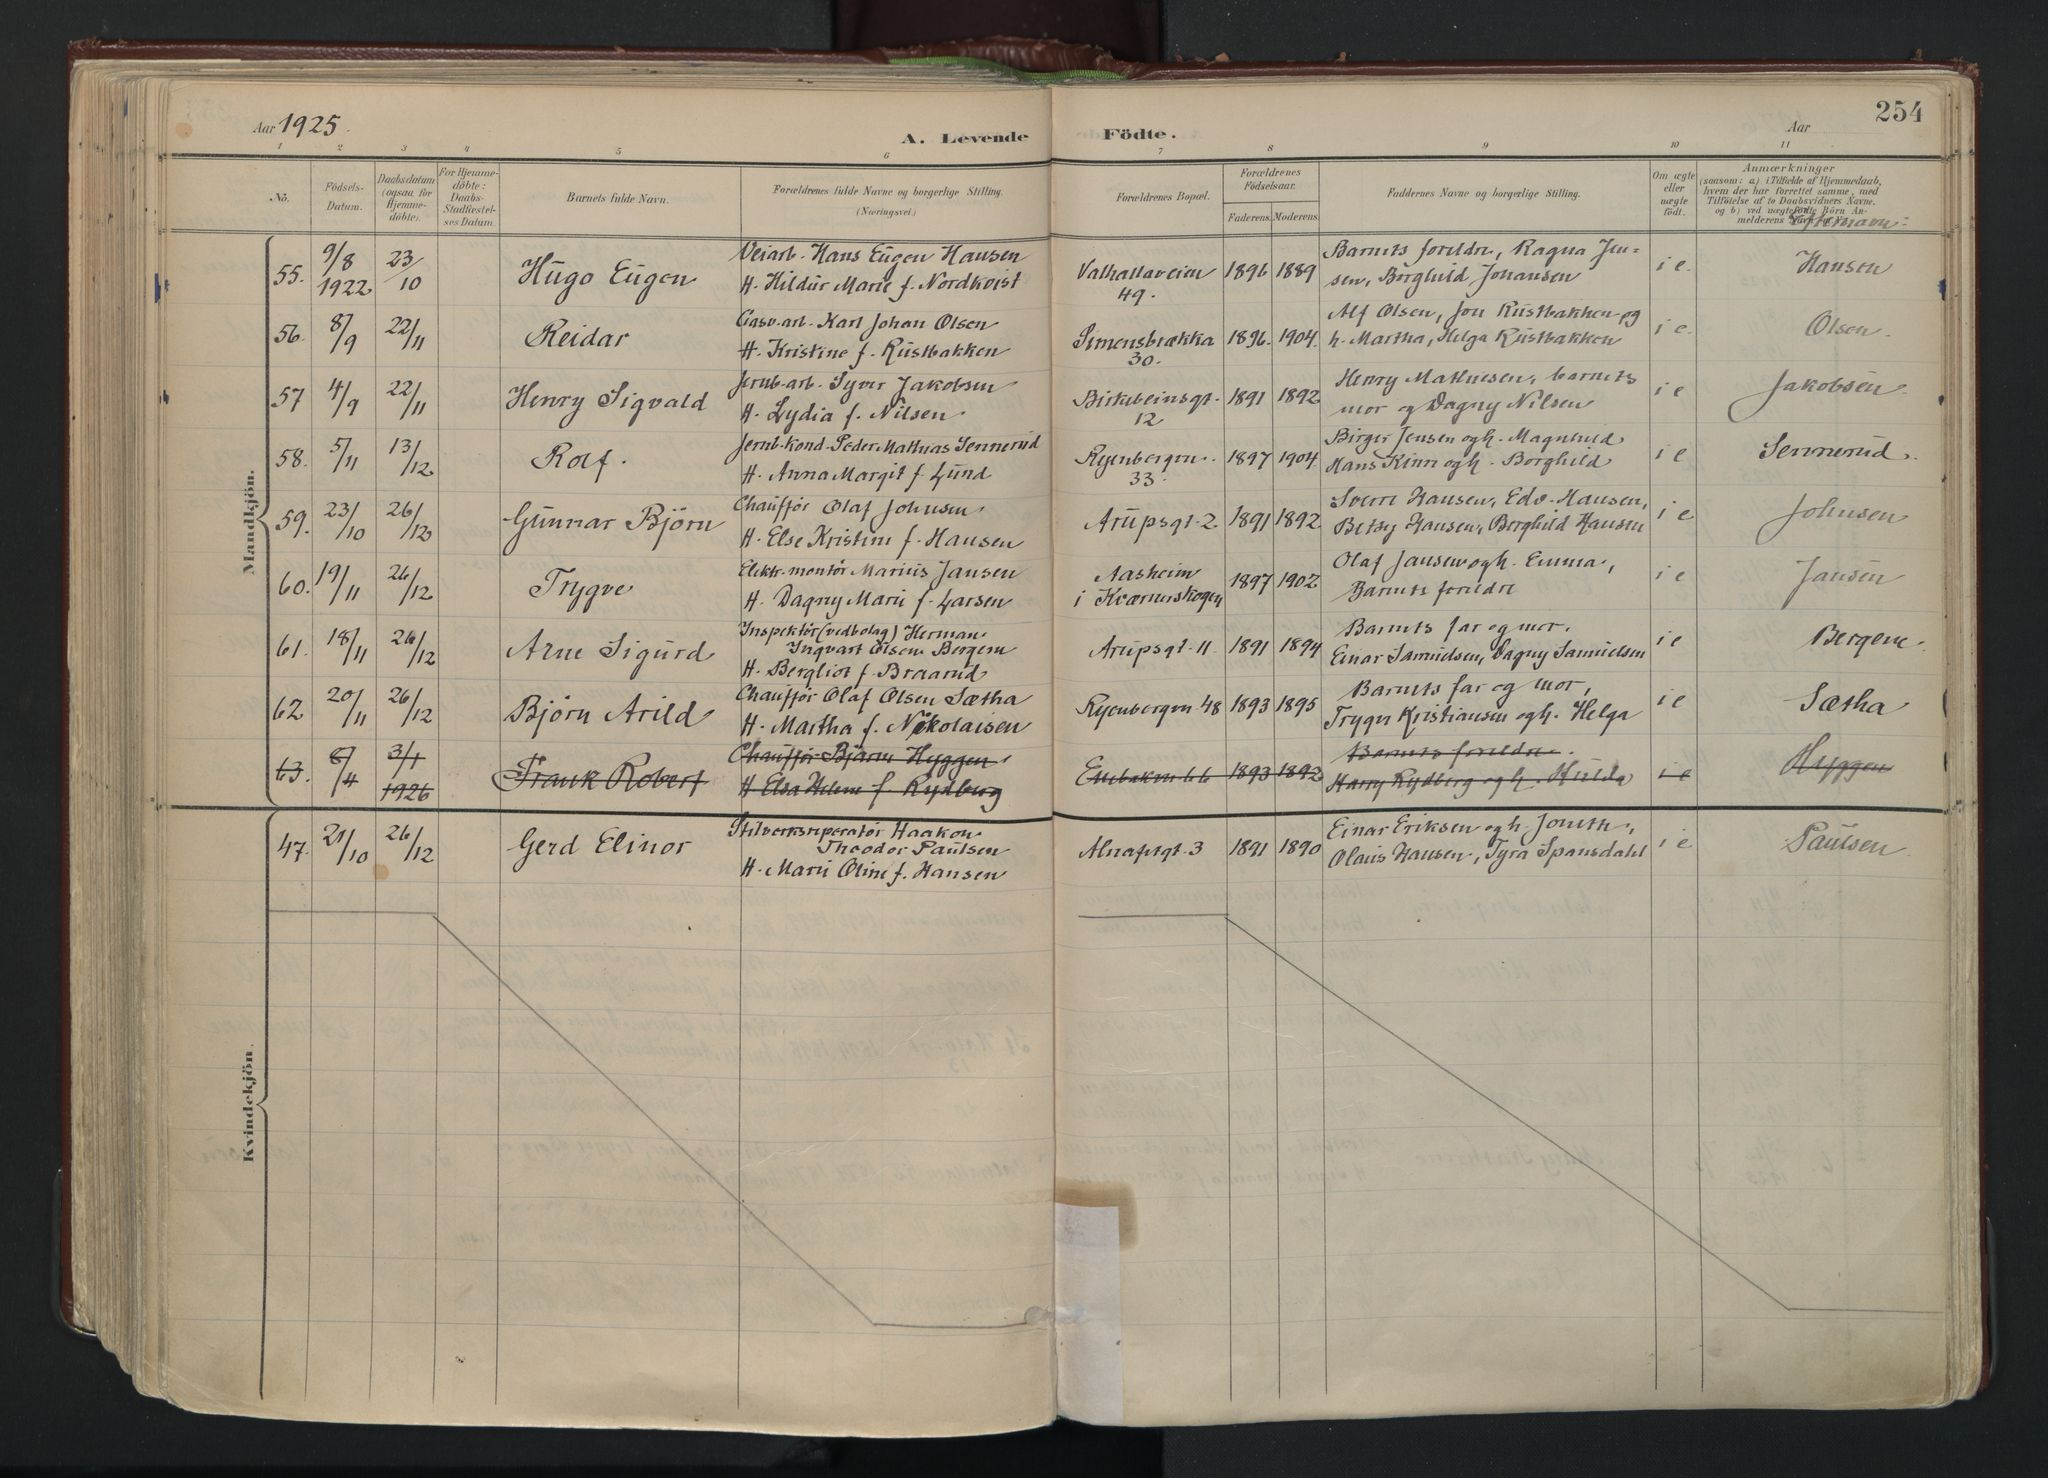 Aar 1925.
A. Levende
Födte.
Aar
254
1 2 3 4 5 6 7 8 9 10 11
No.
Födsels-Datum.
Daabsdatum (ogsaa for Hjemme-döbte).
For Hjemme-döbte: Daabs-Stadfæstel-ses Datum.
Barnets fulde Navn.
Forældrenes fulde Navne og borgerlige Stilling. (Næringsvei.)
Forældrenes Bopæl.
Forældrenes Födselsaar.
Faderens. Moderens.
Faddernes Navne og borgerlige Stilling.
Om ægte eller uægte födt.
Anmærkninger
(saasom: a) i Tilfælde af Hjemmedaab,
hvem der har forrettet samme, med
Tilföielse af to Daabsvidners Navne,
og b) ved uægtefödte Börn An-
melderens Navn
Efternavn:
Mandkjön.
55. 9/8 1922 23/10 Hugo Eugen
Veiarb. Hans Eugen Hansen
H. Hildur Marie f. Nordkvist
Valhallaveien 49. 1896 1889
Barnets foreldre, Ragna Jen-
sen, Borghild Johansen
i e. Hansen
56. 8/9 22/11 Reidar
Gasv.arb. Karl Johan Olsen
H. Kristine f. Rustbakken
Simensbrækka 30. 1896. 1904.
Alf Olsen, Jon Rustbakken og
h. Martha, Helga Rustbakken
i e Olsen.
57 4/9 22/11 Henry Sigvald
Jernb.arb. Syver Jakobsen
H. Lydia f. Nilsen.
Birkebeinsgt. 12 1891 1892
Henry Mathiesen, barnets
mor og Dagny Nilsen
i e Jakobsen.
58. 5/11 13/12 Rolf.
Jernb.kond. Peder Mathias Sennerud
H. Anna Margit f. Lund
Ryenbergen. 33. 1897 1904.
Birger Jensen og h. Magnhild
Hans Kinn og h. Borghild
i e Sennerud.
59. 23/10 26/12 Gunnar Björn
Chauffør Olaf Johnsen
H. Else Kristine f. Hansen
Arupsgt. 2 1891 1892
Sverre Hansen, Edv. Hansen,
Betsy Hansen, Borghild Hansen
i e Johnsen
60. 19/11 26/12 Trygve
Elektr.montör Marius Jansen
H. Dagny Marie f. Larsen
Aasheim
i Kværnerskogen 1897 1902
Olaf Jansen og h. Emma,
Barnets foreldre
i e Jansen
61. 18/11 26/12 Arne Sigurd
Inspektör (vedbolag) Herman
Ingvart Olsen Bergene
H. Bergliot f. Braarud
Arupsgt. 11 1891 1894
Barnets far og mor.
Einar Samuelsen, Dagny Samuelsen
i e Bergene.
62 20/11 26/12 Björn Arild
Chauffør Olaf Olsen Sætha
H. Martha f. Nikolaisen
Ryenbergen 48 1893 1895
Barnets far og mor,
Trygve Kristiansen og h. Helga
i e Sætha
63. 8/4 3/1 1926 Frank Robert
Chauffør Bjarne Hyggen
H Elsa Helene f. Rydberg
66 1893 1892
Barnets foreldre.
Harry Rydberg og h. Hulda
i e Hyggen
Kvindekjön.
47. 21/10 26/12 Gerd Elinor
Haakon
Theodor Paulsen
H. Marie Oline f. Hansen
Alnafetgt. 3 1891 1890
Einar Eriksen og h.
Olaus Hansen, Tyra Spansdahl
i e Paulsen